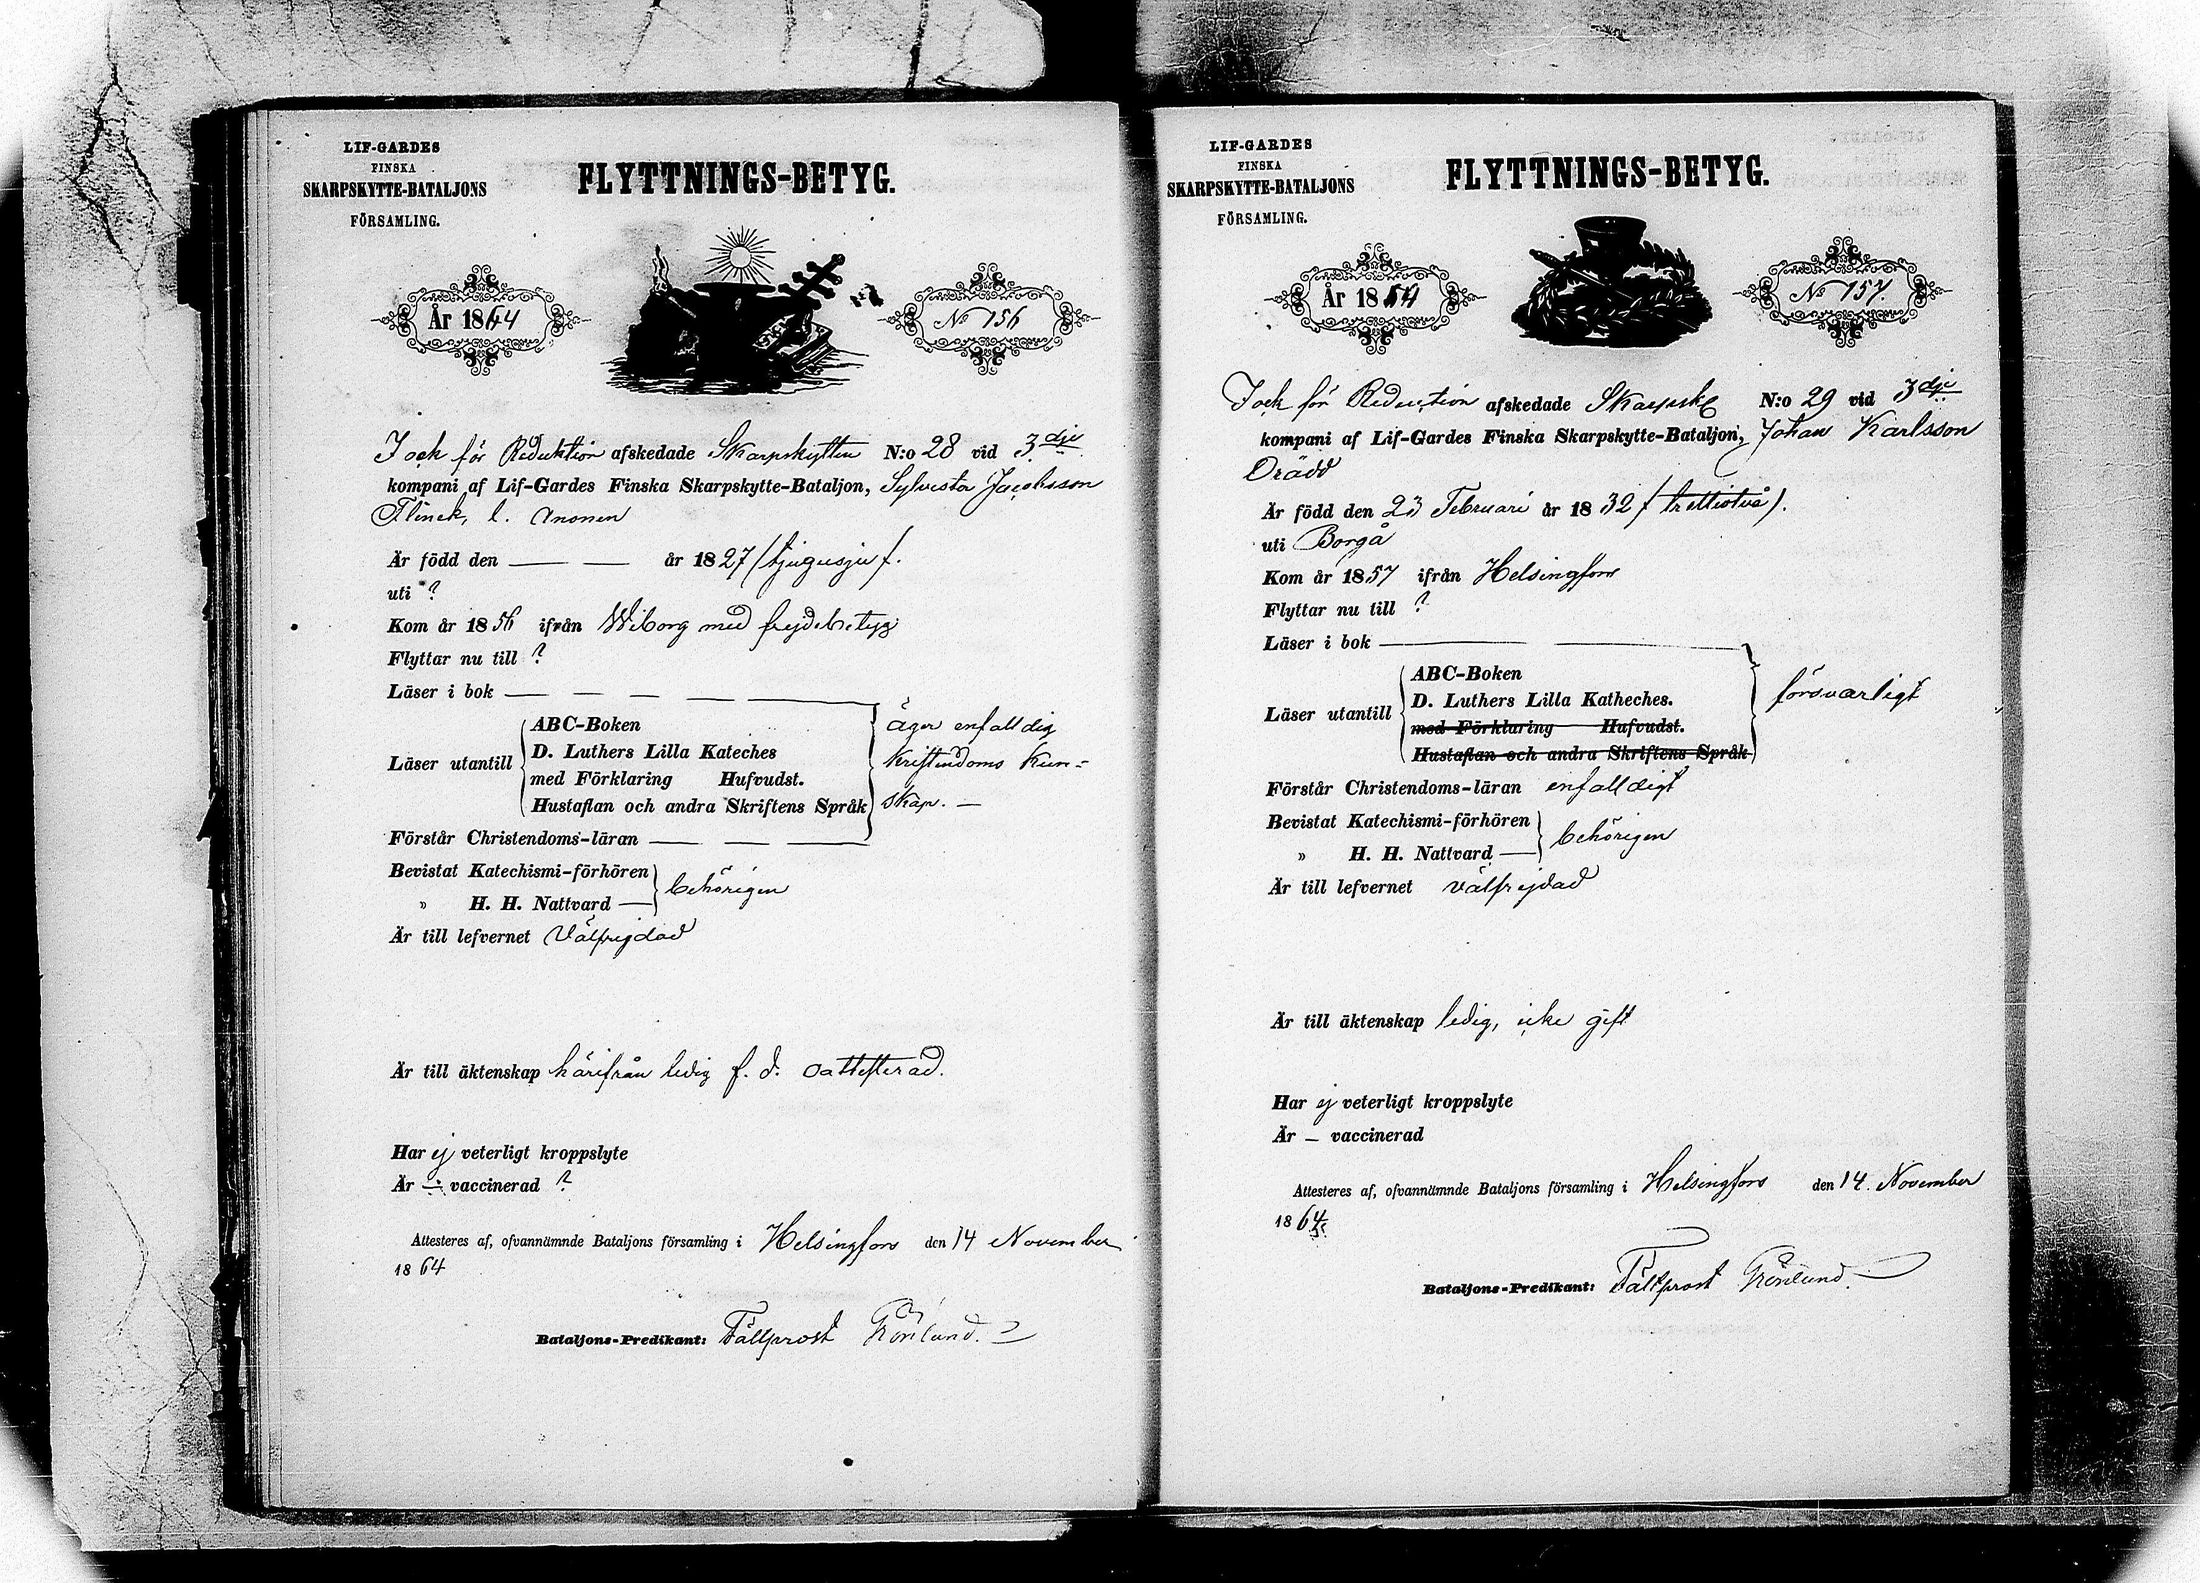 LIF-GARDES
FINSKA
SKARPSKYTTE-BATALJONS
FÖRSAMLING.
FLYTTNINGS-BETYG.
År 1864
No 156
I och för Reduktion afskedade Skarpskytten N:o 28 vid 3dje
kompani af Lif-Gardes Finska Skarpskytte-Bataljon, Sylvester Jacobsson
Flinck, l. Anonen
Är född den — — år 1827 / tjugusju /.
uti ?
Kom år 1856 ifrån Wiborg med frejdebetyg
Flyttar nu till ?
Läser i bok — — — — —
Läser utantill
ABC-Boken
D. Luthers Lilla Kateches
med Förklaring Hufvudst.
Hustaflan och andra Skriftens Språk
äger enfalldig
Kristendoms Kun-
skap. —
Förstår Christendoms-läran — — —
Bevistat Katechismi-förhören
» H. H. Nattvard —
behörigen
Är till lefvernet Välfrejdad
Är till äktenskap härifrån ledig f. d.
Har ej veterligt kroppslyte
Är — vaccinerad ?
Attesteres af, ofvannämnde Bataljons församling i Helsingfors den 14 November
1864
Bataljons-Predikant: Fältprost Grönlund.
LIF-GARDES
FINSKA
SKARPSKYTTE-BATALJONS
FÖRSAMLING.
FLYTTNINGS-BETYG.
År 1864
No 157.
I och för Reduction afskedade Skarpsk N:o 29 vid 3dje
kompani af Lif-Gardes Finska Skarpskytte-Bataljon, Johan Karlsson
Orädd
Är född den 23 Februari år 1832 / trettiotvå /.
uti Borgå
Kom år 1857 ifrån Helsingfors
Flyttar nu till ?
Läser i bok — —
Läser utantill
ABC-Boken
D. Luthers Lilla Katheches.
med Förklaring Hufvudst.
Hustaflan och andra Skriftens Språk
försvarligt
Förstår Christendoms-läran enfalldigt
Bevistat Katechismi-förhören
» H. H. Nattvard —
behörigen
Är till lefvernet välfrejdad
Är till äktenskap ledig, icke gift
Har ej veterligt kroppslyte
Är — vaccinerad
Attesteres af, ofvannämnde Bataljons församling i Helsingfors den 14. November
1864.
Bataljons-Predikant: Fältprost Grönlund.